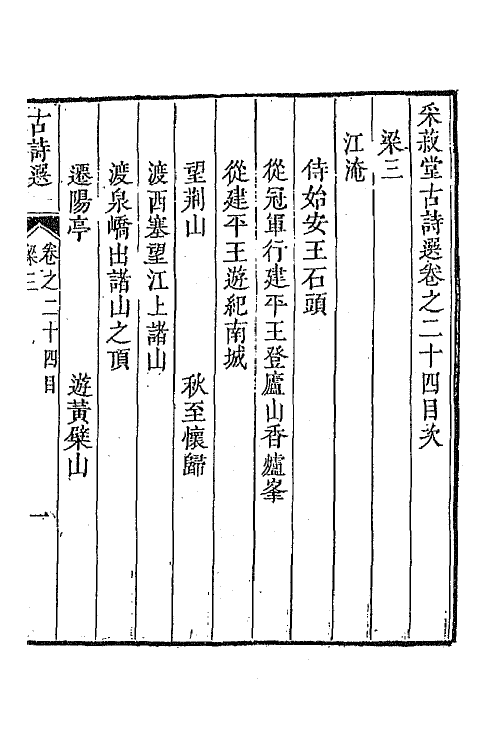 采菽堂古詩選卷之二十四目次
梁三
江淹
侍始安王石頭
從冠軍行建平王登廬山香爐峯
從建平王遊紀南城
望荆山　秋至懷歸
渡西塞望江上諸山
渡泉嶠出諸山之頂
遷陽亭　遊黃檗山
古詩選　卷之二十四目　一
梁三